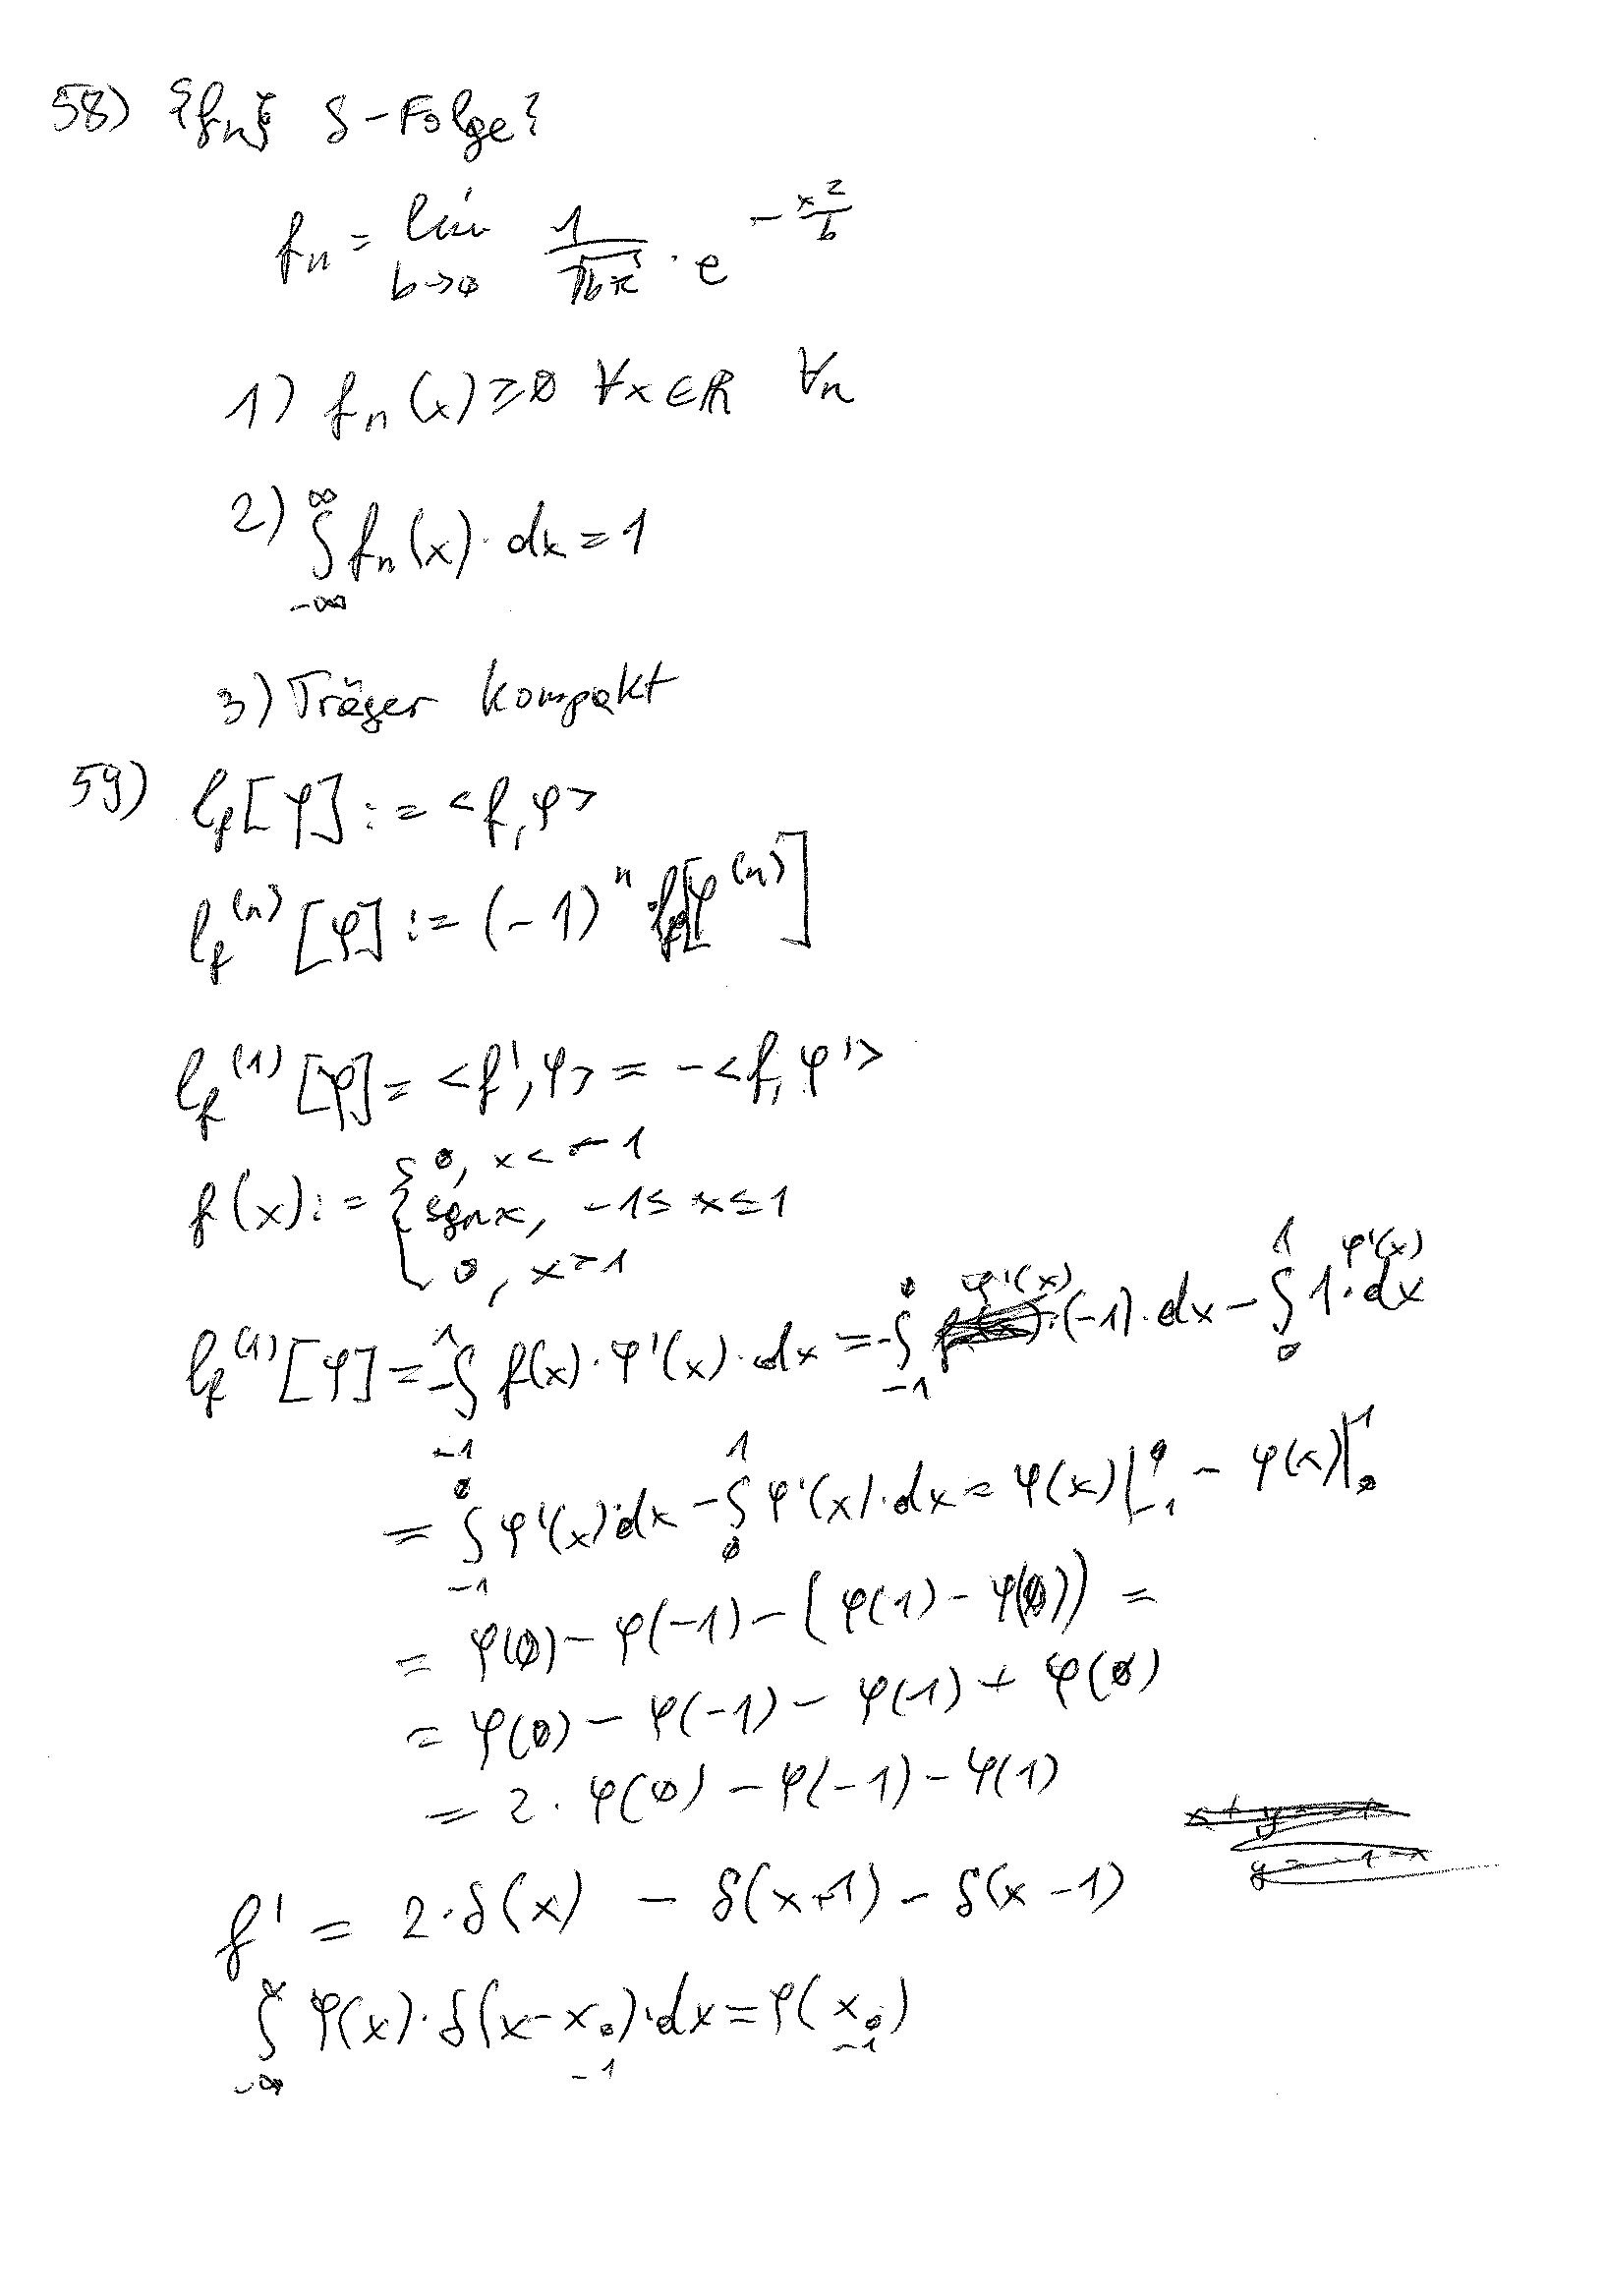 58) {fₙ} δ-Folge?
fₙ = lim b→0 1/√(bπ) · e^(-x²/b)
1) fₙ(x) ≥ 0 ∀x∈ℝ ∀n
2) ∫_{-∞}^{∞} fₙ(x)·dx = 1
3) Träger kompakt
59) l_f[φ] := <f, φ>
l_f^(n)[φ] := (-1)^n · l_f[φ^(n)]
l_f^(1)[φ] = <f', φ> = -<f, φ'>
f(x) := { 0, x < -1
sgn x, -1 ≤ x ≤ 1
0, x > 1
l_f^(1)[φ] = -∫_{-1}^{1} f(x)·φ'(x)·dx = -∫_{-1}^{0} φ'(x)·(-1)·dx - ∫_{0}^{1} 1·φ'(x) dx
= ∫_{-1}^{0} φ'(x)·dx - ∫_{0}^{1} φ'(x)·dx = φ(x)|_{-1}^{0} - φ(x)|_{0}^{1}
= φ(0) - φ(-1) - (φ(1) - φ(0)) =
= φ(0) - φ(-1) - φ(1) + φ(0)
= 2·φ(0) - φ(-1) - φ(1)
y = -1-x
f' = 2·δ(x) - δ(x+1) - δ(x-1)
∫_{-∞}^{∞} φ(x)·δ(x-x₀)·dx = φ(x₀)
-1 -1